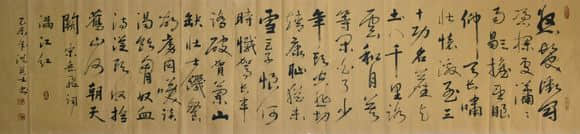 怒髮衝冠
憑欄處瀟瀟
雨歇擡望眼
仰天長嘯
壯懷激烈三
十功名塵與
土八千里路
雲和月莫
等閒白了少
年頭空悲切
靖康恥猶未
雪臣子恨何
時滅駕長車
踏破賀蘭山
缺壯志饑餐
胡虜肉笑談
渴飲匈奴血
待從頭收拾
舊山河朝天
闕宋岳飛詞
滿江紅